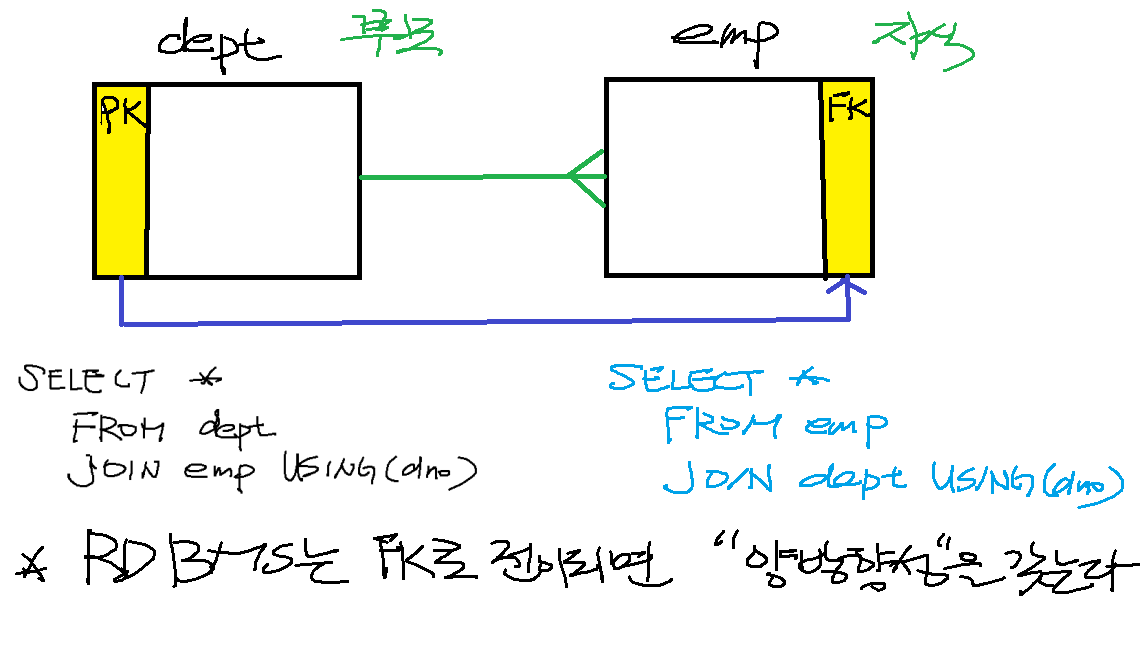 dept 부모
emp 자식
PK
FK
SELECT *
FROM dept
JOIN emp USING(dno)
SELECT *
FROM emp
JOIN dept USING(dno)
* RDBMS는 FK로 전이되면 “양방향성“을 갖는다